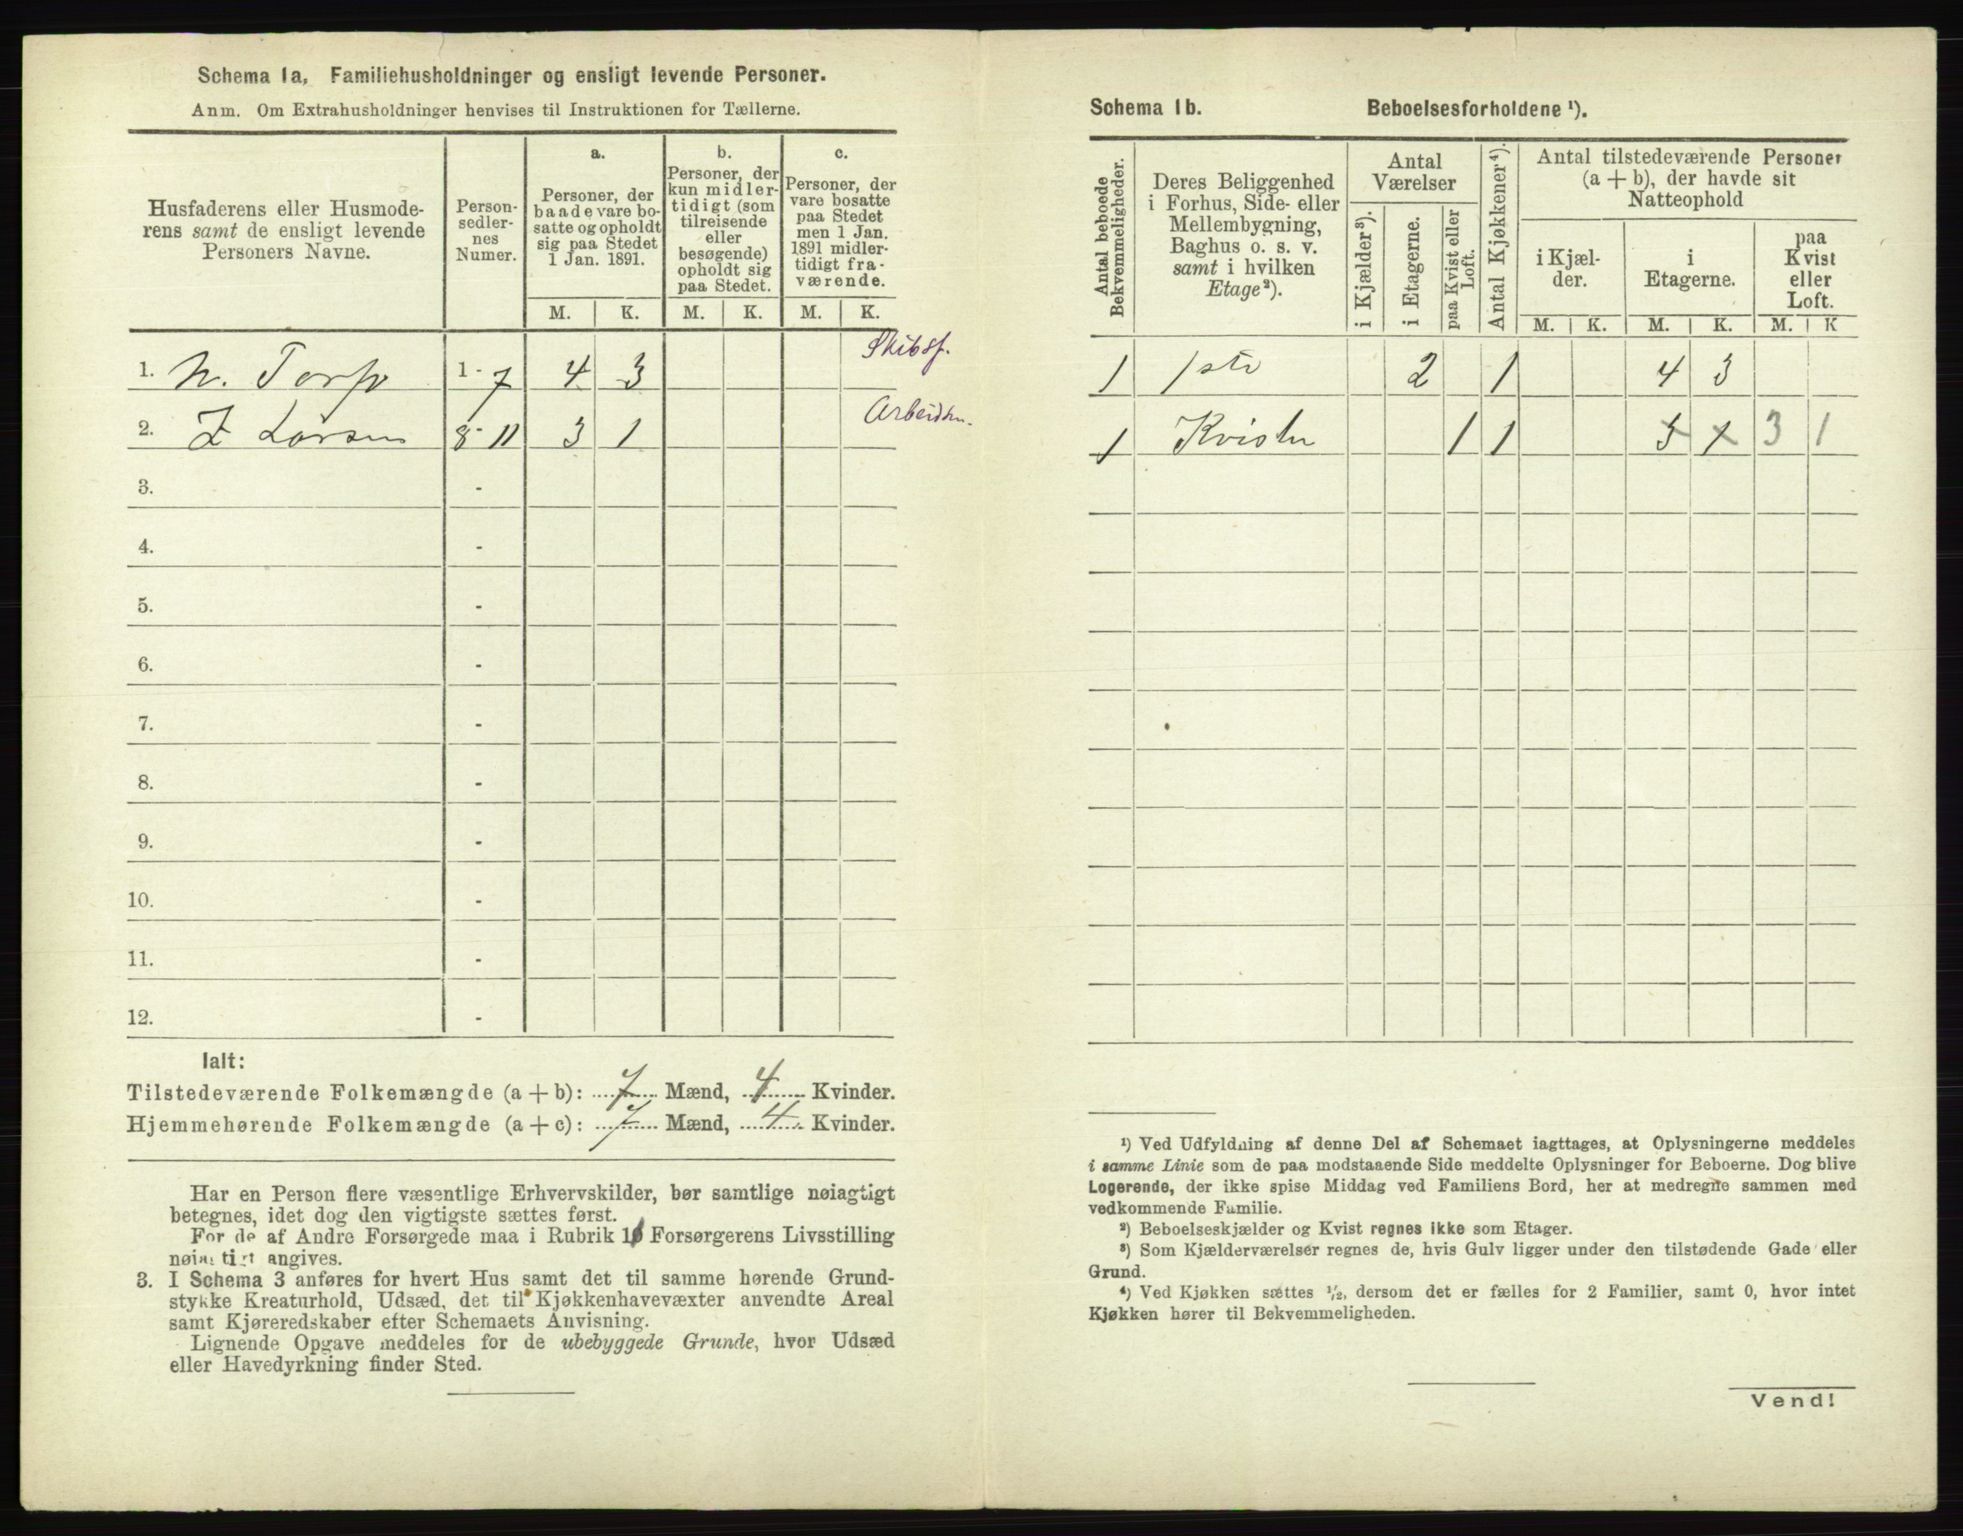 Schema 1a, Familiehusholdninger og ensligt levende Personer.
Anm. Om Extrahusholdninger henvises til Instruktionen for Tællerne.
Husfaderens eller Husmode-
rens samt de ensligt levende
Personers Navne.
Person-
sedler-
nes
Numer.
a.
Personer, der
baade vare bo-
satte og opholdt
sig paa Stedet
1 Jan. 1891.
b.
Personer, der
kun midler-
tidigt (som
tilreisende
eller
besøgende)
opholdt sig
paa Stedet.
c.
Personer, der
vare bosatte
paa Stedet
men 1 Jan.
1891 midler-
tidigt fra-
værende.
M. K. M. K. M. K.
1. N. Torp 1 - 7 4 3 Skibsf.
2. Z Larsen 8 - 11 3 1
3. -
4. -
5. -
6. -
7. -
8. -
9. -
10. -
11. -
12. -
Ialt:
Tilstedeværende Folkemængde (a + b): 7 Mænd, 4 Kvinder.
Hjemmehørende Folkemængde (a + c): 7 Mænd, 4 Kvinder.
Har en Person flere væsentlige Erhvervskilder, bør samtlige nøiagtigt
betegnes, idet dog den vigtigste sættes først.
For de af Andre Forsørgede maa i Rubrik 10 Forsørgerens Livsstilling
nøiagtigt angives.
3. I Schema 3 anføres for hvert Hus samt det til samme hørende Grund-
stykke Kreaturhold, Udsæd, det til Kjøkkenhavevæxter anvendte Areal
samt Kjøreredskaber efter Schemaets Anvisning.
Lignende Opgave meddeles for de ubebyggede Grunde, hvor Udsæd
eller Havedyrkning finder Sted.
Schema 1b. Beboelsesforholdene ¹).
Antal beboede
Bekvemmeligheder.
Deres Beliggenhed
i Forhus, Side- eller
Mellembygning,
Baghus o. s. v.
samt i hvilken
Etage ²).
Antal
Værelser
i Kjælder ³).
i Etagerne.
paa Kvist eller
Loft.
Antal Kjøkkener ⁴).
Antal tilstedeværende Personer
(a + b), der havde sit
Natteophold
i Kjæl-
der.
i
Etagerne.
paa
Kvist
eller
Loft.
M. K. M. K. M. K
1 1ste 2 1 4 3
1 Kvisten 1 1 3 1 3 1
¹) Ved Udfyldning af denne Del af Schemaet iagttages, at Oplysningerne meddeles
i samme Linie som de paa modstaaende Side meddelte Oplysninger for Beboerne. Dog blive
Logerende, der ikke spise Middag ved Familiens Bord, her at medregne sammen med
vedkommende Familie.
²) Beboelseskjælder og Kvist regnes ikke som Etager.
³) Som Kjælderværelser regnes de, hvis Gulv ligger under den tilstødende Gade eller
Grund.
⁴) Ved Kjøkken sættes ½, dersom det er fælles for 2 Familier, samt 0, hvor intet
Kjøkken hører til Bekvemmeligheden.
Vend!